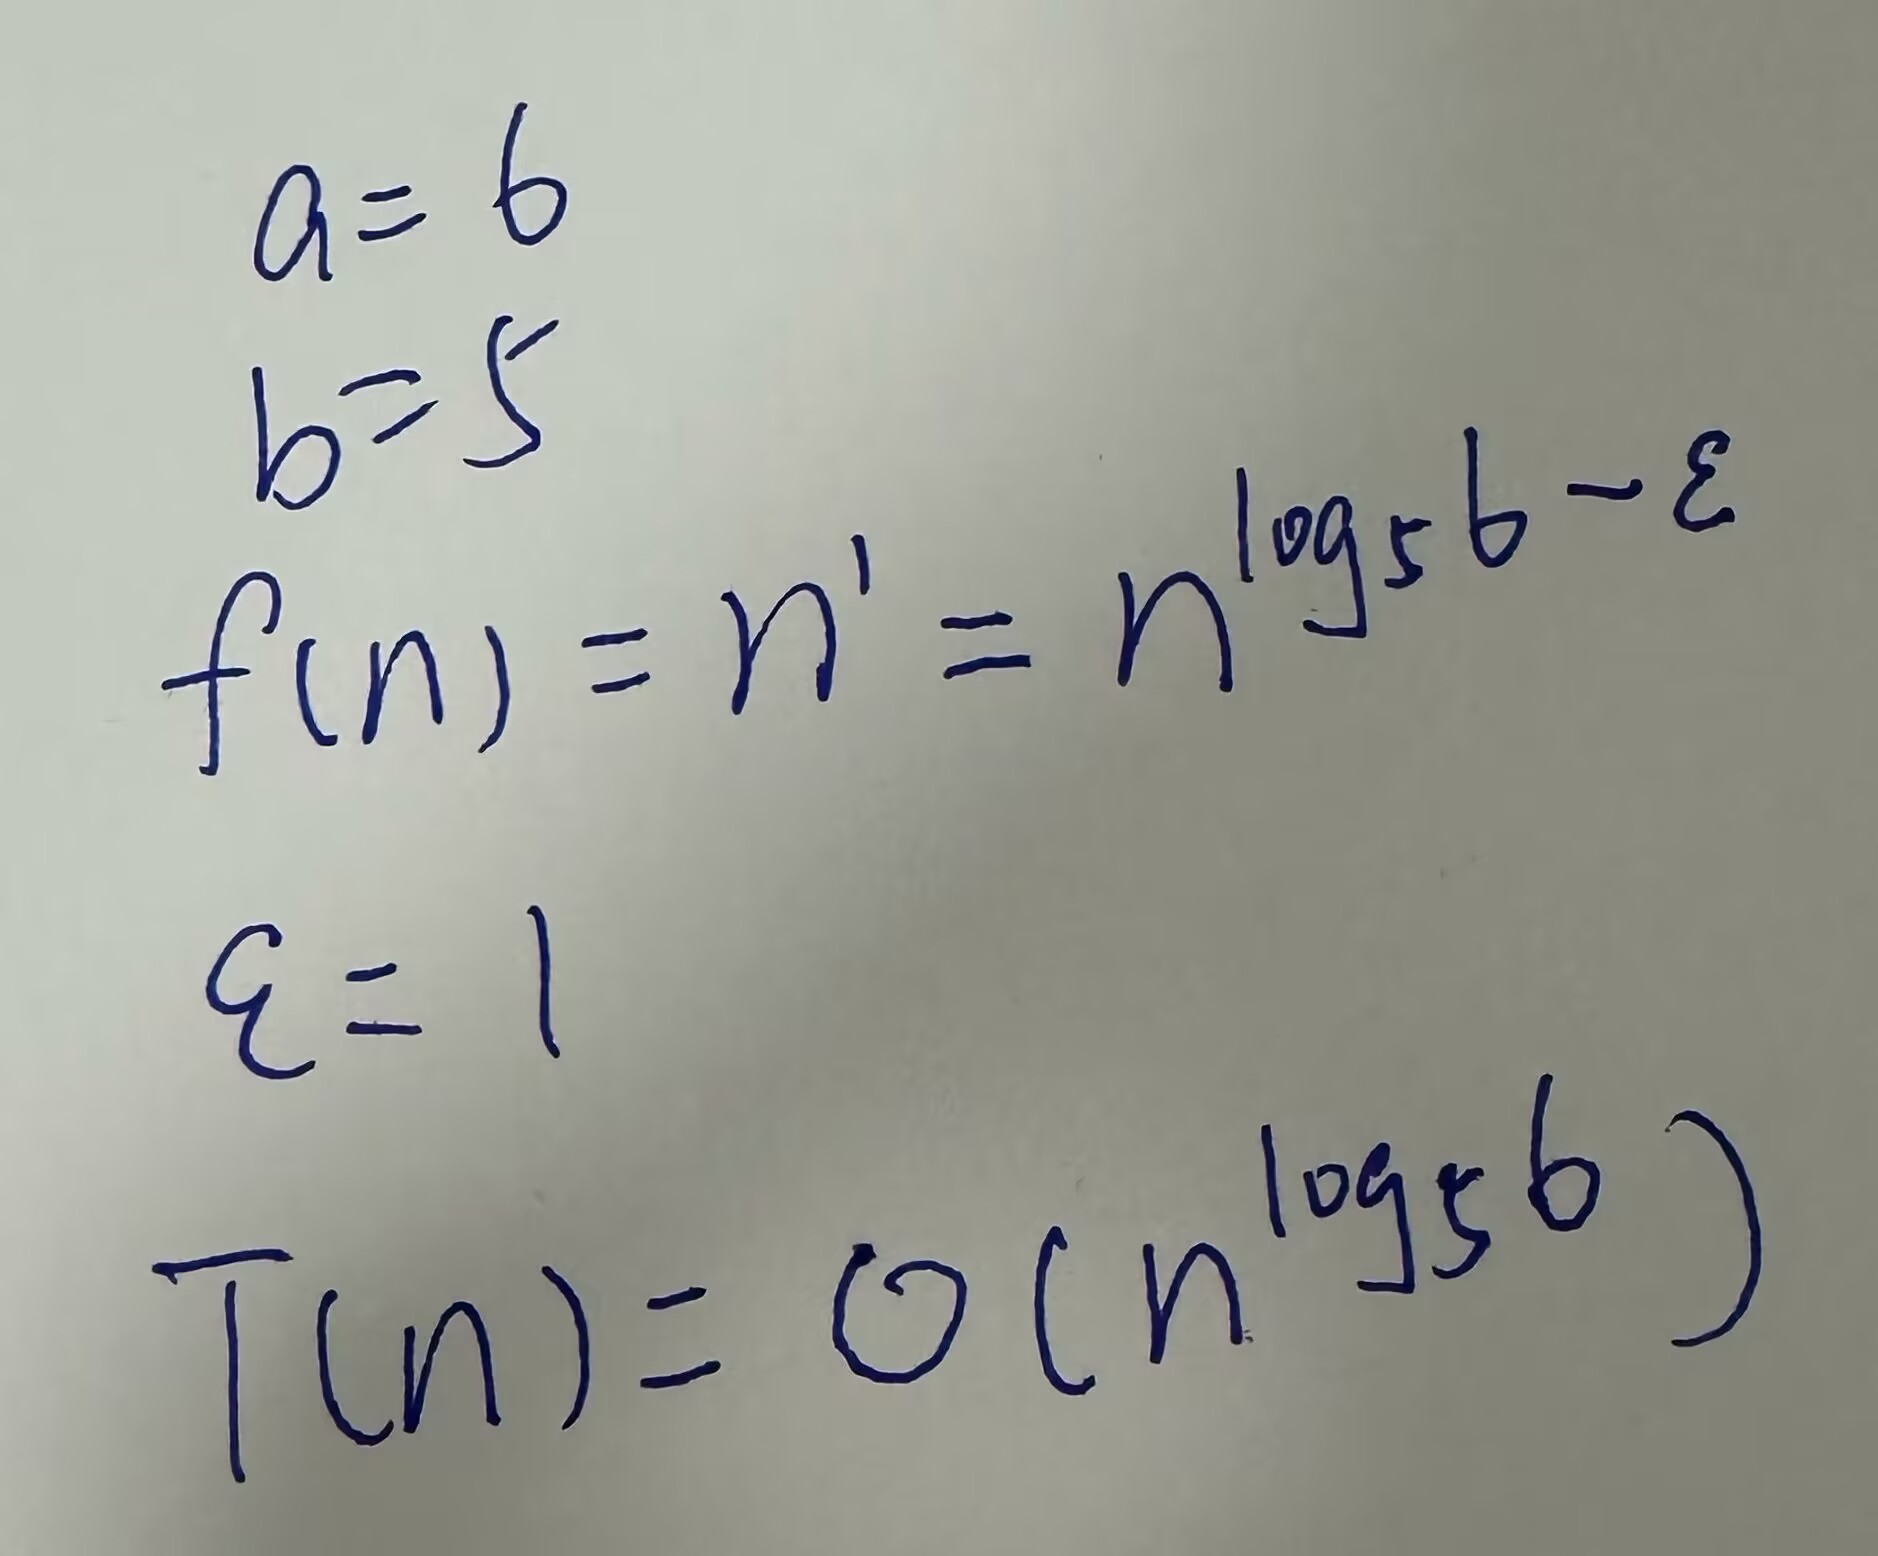 a = 6
b = 5
f(n) = n¹ = n^{log₅6 - ε}
ε = 1
T(n) = O(n^{log₅6})